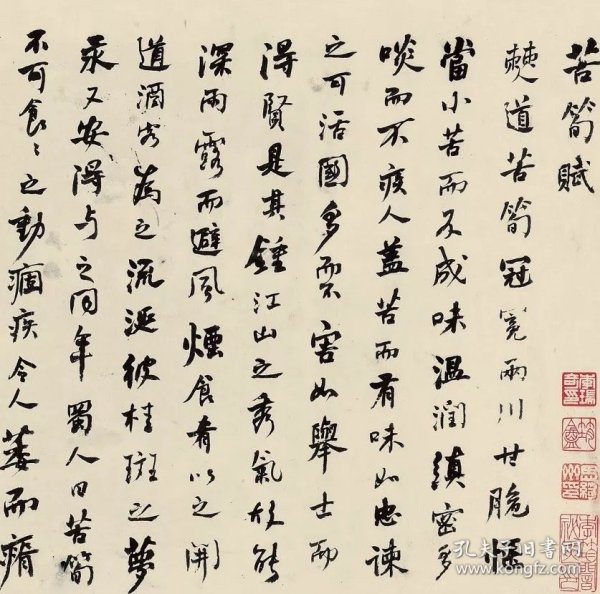 苦筍賦
僰道苦筍冠冕兩川甘脆愜
當小苦而反成味温潤縝密多
啖而不疾人蓋苦而有味如忠諫
之可活國多而不害如舉士而
得賢是其鍾江山之秀氣故能
深雨露而避風煙食肴以之開
道酒客為之流涎彼桂斑之夢
永又安得与之同年蜀人曰苦筍
不可食〻之動痼疾令人萎而瘠
孔夫子旧书网
www.kongfz.com